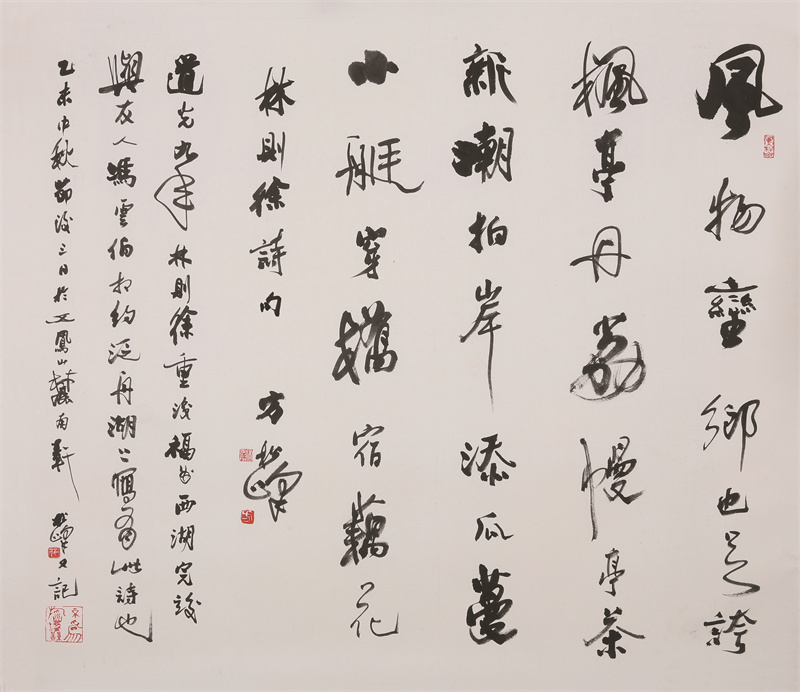 風物蠻鄉也足誇
楓亭丹荔幔亭茶
新潮拍岸添瓜蔓
小艇穿橋宿藕花
林則徐詩句 方
道光九年林則徐重浚福州西湖完竣
與友人馮雲伯相約泛舟湖上寫有此詩也
乙未中秋節後三日於五鳳山麓南軒 又記